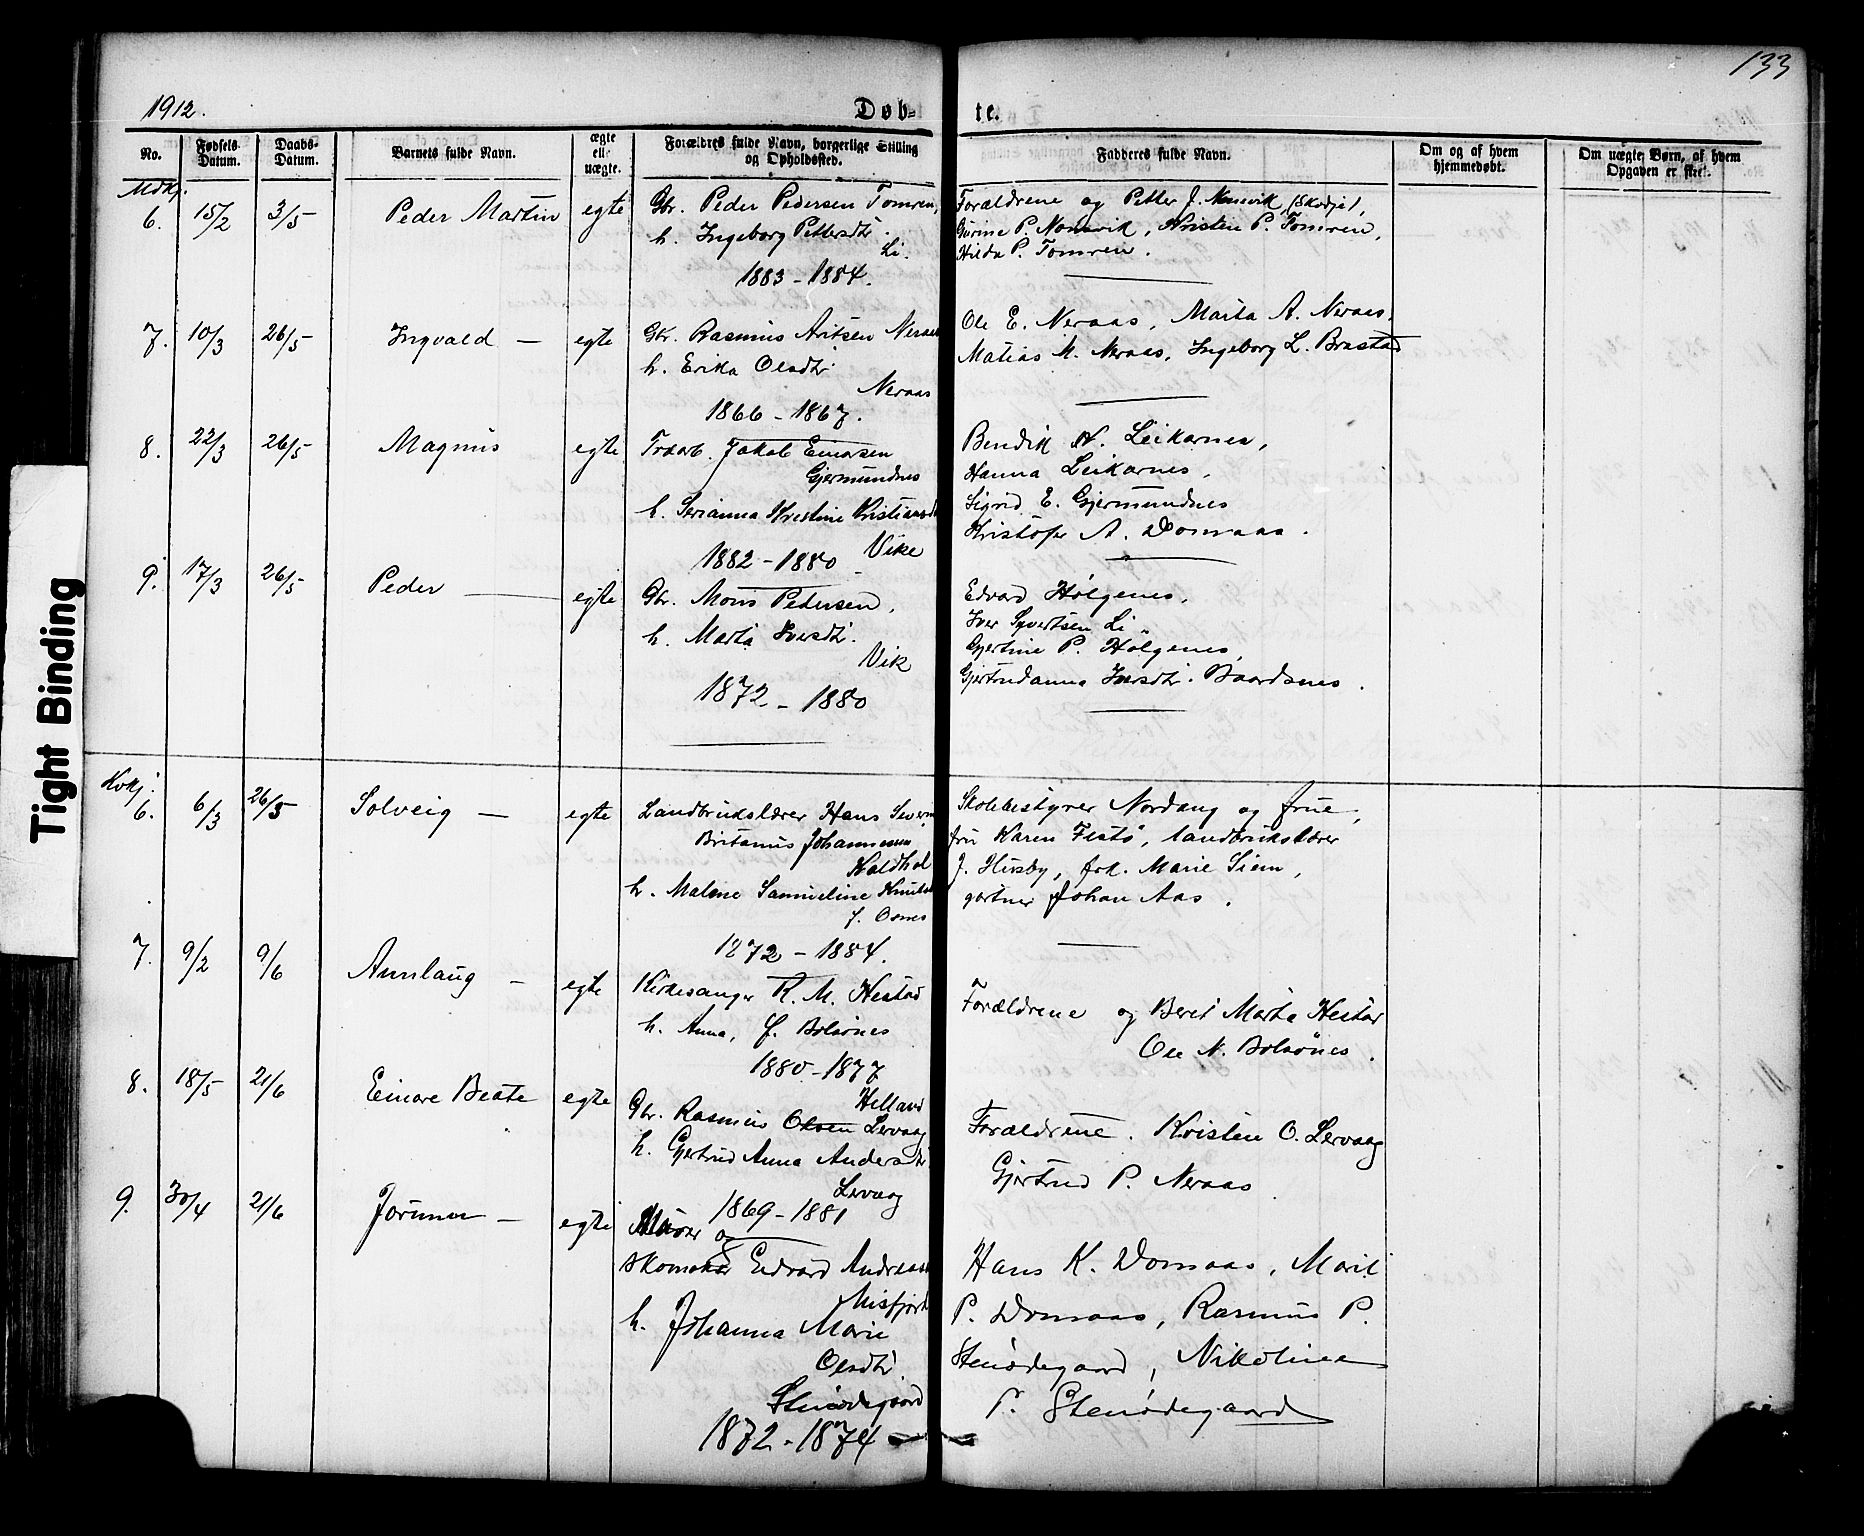 133
1912.
Døb-te.
No.
Fødsels Datum.
Daabs-Datum.
Barnets fulde Navn.
ægte ell. uægte.
Forældres fulde Navn, borgerlige Stilling og Opholdssted.
Fadderes fulde Navn.
Om og af hvem hjemmedøbt.
Om uægte Børn, af hvem Opgaven er skeet.
Mdkj.
6. 15/2 3/5 Peder Martin egte Gbr. Peder Pedersen Tomren,
h. Ingeborg Pettersdtr.
Li.
1883 - 1884.
Forældrene og Petter J. Nonsvik, Skodje,
Gurine P. Nonsvik, Kristen P. Tomren,
Hilda P. Tomren.
7. 10/3 26/5 Ingvald — egte Gbr. Rasmus Aritsen Neraas
h. Erika Olsdtr.
Neraas
1866 - 1867.
Ole E. Neraas, Marta A. Neraas,
Matias M. Neraas, Ingeborg L. Brastad
8. 22/3 26/5 Magnus egte Jakob Einarsen
Gjermundnes
h. Serianna Kristine Kristiansdt
Vike
1882 - 1880
Bendik N. Leikarnes,
Hanna Leikarnes,
Sigrid E. Gjermundnes
Kristofer A. Domaas.
9. 17/3 26/5 Peder — egte Gbr. Mons Pedersen,
h. Marta Iversdtr.
Vik
1872 - 1880
Edvard Hølgenes,
Iver Syvertsen Li
Gjertine P. Hølgenes,
Gjertrudanna Iversdtr. Baardsnes.
Kvkj.
6. 6/3 26/5 Solveig — egte Landbrukslærer Hans Severin
Britanus Johannesen
Haldhol
h. Malene Samueline Knuts
f. Osnes
1872 - 1884.
Skolebestyrer Nordang og frue,
fru Karen Festø, landbrukslærer
J. Husby, frk. Marie Siem,
gartner Johan Aas.
7. 9/2 9/6 Aunlaug — egte Kirkesanger R. M. Hestad
h. Anna, f. Bolsønes
1880 - 1877
Forældrene og Berit Marta Hestad
Ole N. Bolsønes.
8. 18/5 21/6 Einare Beate egte Helland
Gbr. Rasmus Olsen Lervaag
h. Gjertrud Anna Andersdtr
Lervaag
1869 - 1881
Forældrene. Kristen O. Lervaag
Gjertrud P. Neraas
9. 30/4 21/6 Jorunn — egte Murer og
skomaker Edvard Andreas
Misfjord
h. Johanna Marie
Olsdtr.
Stenødegaard
1872 - 1874
Hans K. Domaas, Marit
P. Domaas, Rasmus P.
Stenødegaard, Nikoline
P. Stenødegaard
Tight Binding